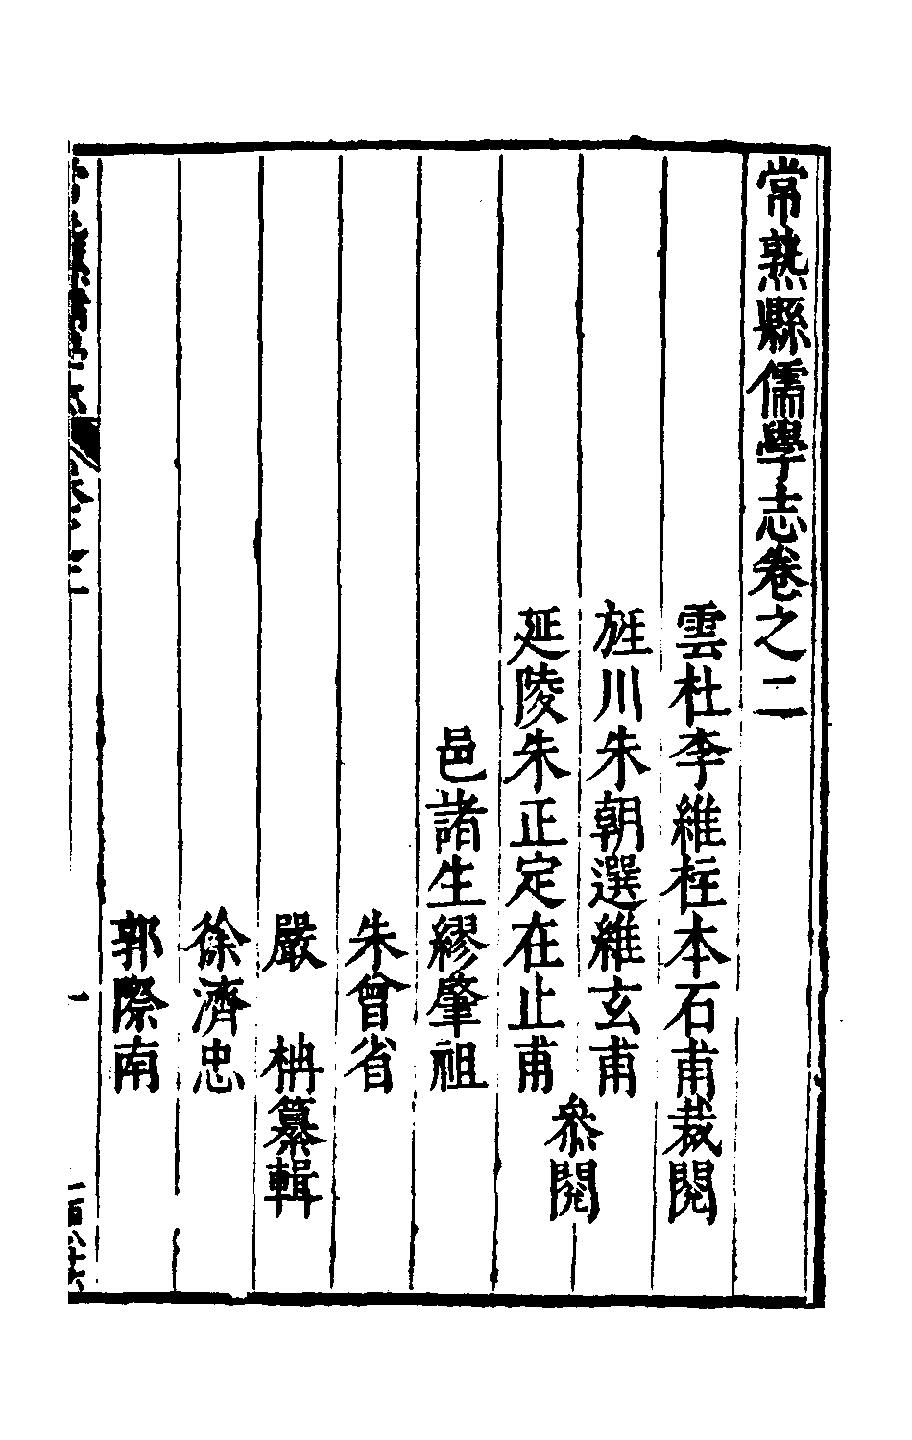 常熟縣儒學志卷之二
雲杜李維柱本石甫裁閱
旌川朱朝選維玄甫
延陵朱正定在止甫
參閱
邑諸生繆肇祖
朱曾省
嚴 柟纂輯
徐濟忠
郭際南